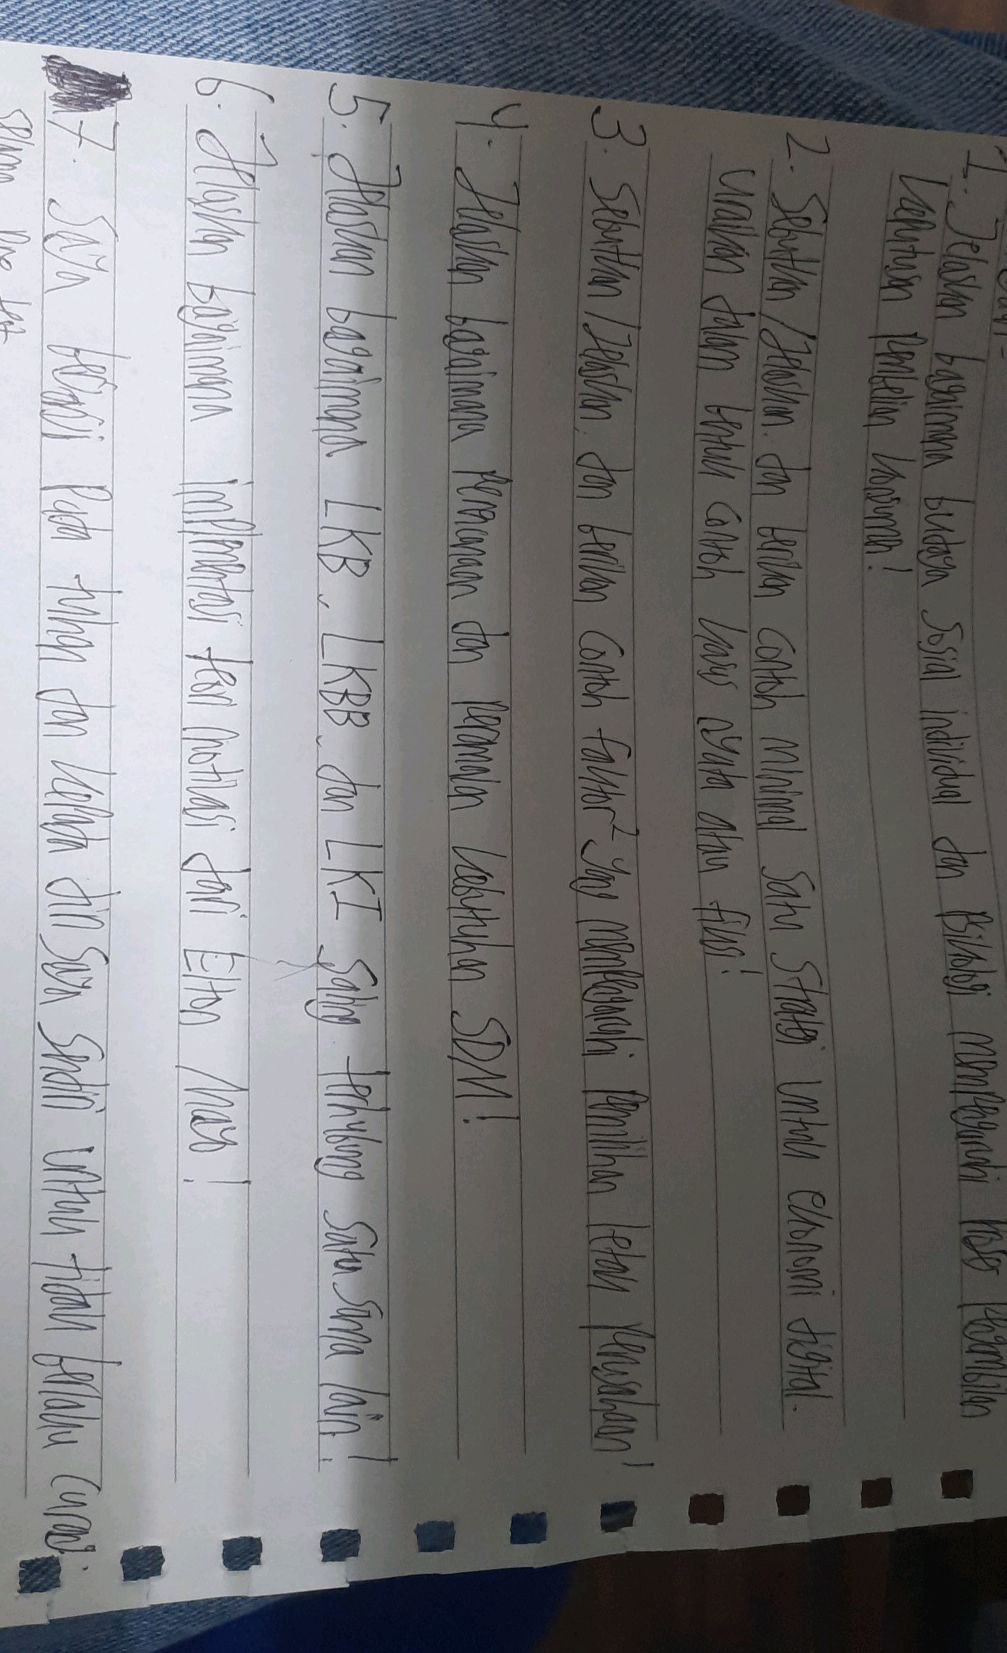 1. Jelaskan bagaimana budaya sosial individual dan Psikologi mempengaruhi proses pengambilan
keputusan pembelian konsumen!
2. Sebutkan/Jelaskan. dan berikan contoh minimal satu strategi untuk ekonomi digital.
uraikan dalam bentuk contoh kasus nyata atau fiksi!
3. Sebutkan/Jelaskan. dan berikan contoh faktor² yng mempengaruhi Pemilihan letak perusahaan!
4. Jelaskan bagaimana Perencanaan dan Peramalan kebutuhan SDM!
5. Jelaskan bagaimana LKB, LKBB, dan LKI saling terhubung satu sama lain!
6. Jelaskan bagaimana implementasi teori motivasi dari Elton Mayo!
7. Saya berjanji Pada tuhan dan kepada diri saya sendiri untuk tidak berlaku curang.